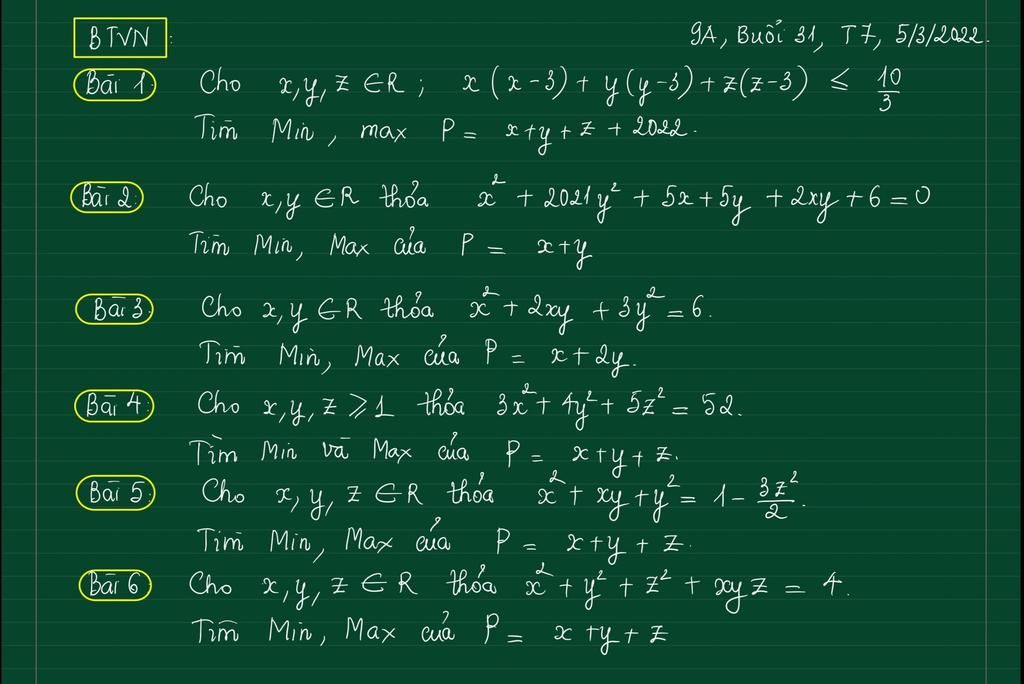 BTVN:
9A, Buổi 31, T7, 5/3/2022.
Bài 1 Cho x, y, z ∈ R ; x(x-3) + y(y-3) + z(z-3) ≤ 10/3
Tìm Min, max P = x+y+z+2022.
Bài 2: Cho x, y ∈ R thỏa x² + 2021y² + 5x + 5y + 2xy + 6 = 0
Tìm Min, Max của P = x+y
Bài 3 Cho x, y ∈ R thỏa x² + 2xy + 3y² = 6.
Tìm Min, Max của P = x + 2y.
Bài 4: Cho x, y, z ⩾ 1 thỏa 3x² + 4y² + 5z² = 52.
Tìm Min và Max của P = x+y+z.
Bài 5: Cho x, y, z ∈ R thỏa x² + xy + y² = 1 - 3z²/2.
Tìm Min, Max của P = x+y+z.
Bài 6: Cho x, y, z ∈ R thỏa x² + y² + z² + xyz = 4.
Tìm Min, Max của P = x+y+z